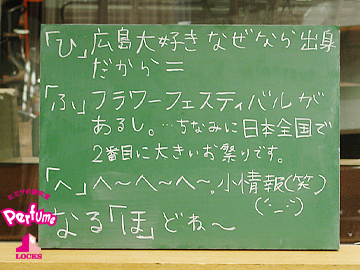 「ひ」広島大好きなぜなら出身
だから=
「ふ」フラワーフェスティバルが
あるし。…ちなみに日本全国で
2番目に大きいお祭りです。
「へ」へ～へ～へ～。小情報(笑)
なる「ほ」どね～
Perfume
LOCKS